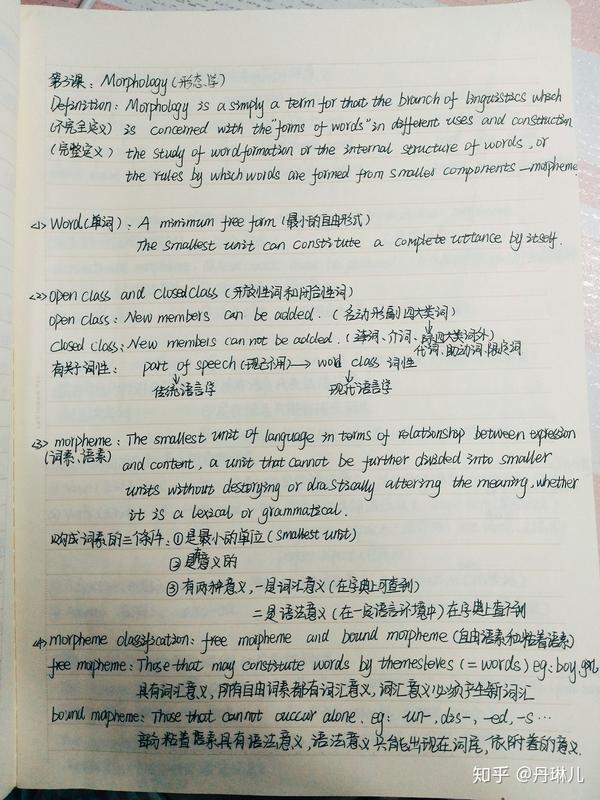 第3课：Morphology(形态学)
Definition: Morphology is a simply a term for that the branch of linguistics which
(不完全定义) is concerned with the "forms of words" in different uses and construction
(完整定义) the study of word formation or the internal structure of words, or
the rules by which words are formed from smaller components — morpheme.
<1> Word(单词): A minimum free form (最小的自由形式)
The smallest unit can constitute a complete uttance by itself.
<2> open class and closed class (开放性词和闭合性词)
open class: New members can be added. (名动形副四大类词)
closed class: New members can not be added. (连词、介词、除四大类词外)
代词、助动词、限定词
有关词性: part of speech(现已不用) → word class 词性
传统语言学 现代语言学
<3> morpheme: The smallest unit of language in terms of relationship between expression
(词素、语素) and content, a unit that cannot be further divided into smaller
units without destorying or drastically altering the meaning, whether
it is a lexical or grammatical.
构成词素的三个条件: ①是最小的单位(smallest unit)
②是有意义的
③有两种意义,一是词汇意义(在字典上可查到)
二是语法意义(在一定语言环境中)在字典上查不到
<4> morpheme classification: free morpheme and bound morpheme (自由语素和粘着语素)
free mopheme: Those that may constitute words by themesleves (=words) eg: boy, girl
具有词汇意义,所有自由词素都有词汇意义,词汇意义必须产生新词汇
bound mapheme: Those that cannot ouccur alone. eg: un-, dis-, -ed, -s ...
部分粘着语素具有语法意义,语法意义只能出现在词尾,依附着的意义.
知乎 @丹琳儿